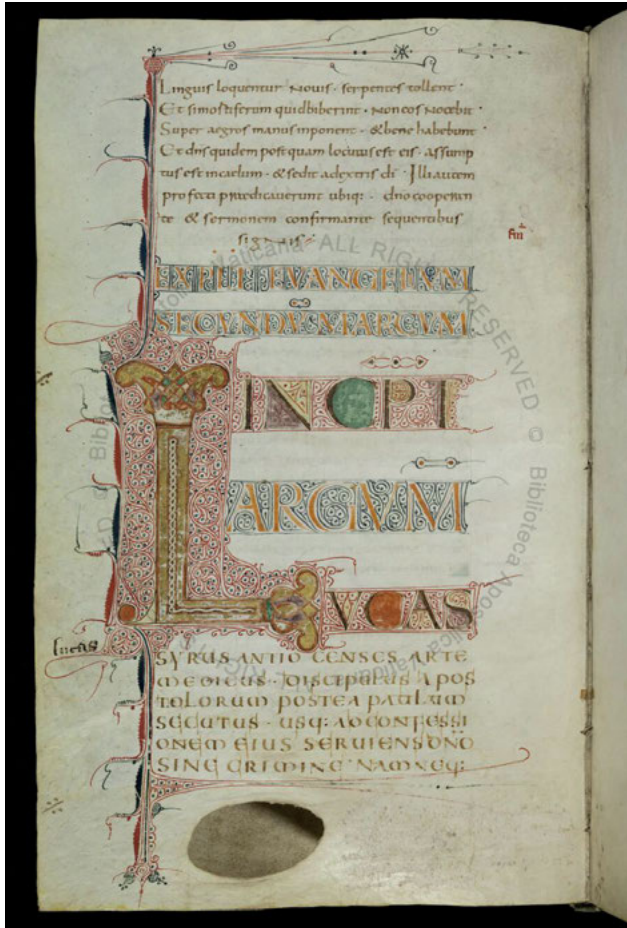 Linguis loquentur novis · serpentes tollent ·
Et si mortiferum quid biberint · non eos nocebit ·
Super aegros manus inponent · & bene habebunt
Et dns quidem postquam locutus est eis · assump
tus est in caelum · & sedit ad extris di · Illi autem
profecti praedicaverunt ubiq: · dno cooperan
te & sermonem confirmante sequentibus
signis
EXPLIT EVANGELIUM
SECUNDUM MARCUM
INCPT
ARGUM
LUCAS
lucas
SYRUS ANTIOCENSES ARTE
MEDICUS · DISCIPULUS APOS
TOLORUM POSTEA PAULUM
SECUTUS · USQ: AD CONFESSI
ONEM EIUS SERUIENS DNO
SINE CRIMINE · NAM NEQ:
ALL RIGHTS RESERVED © Biblioteca Apostolica Vaticana